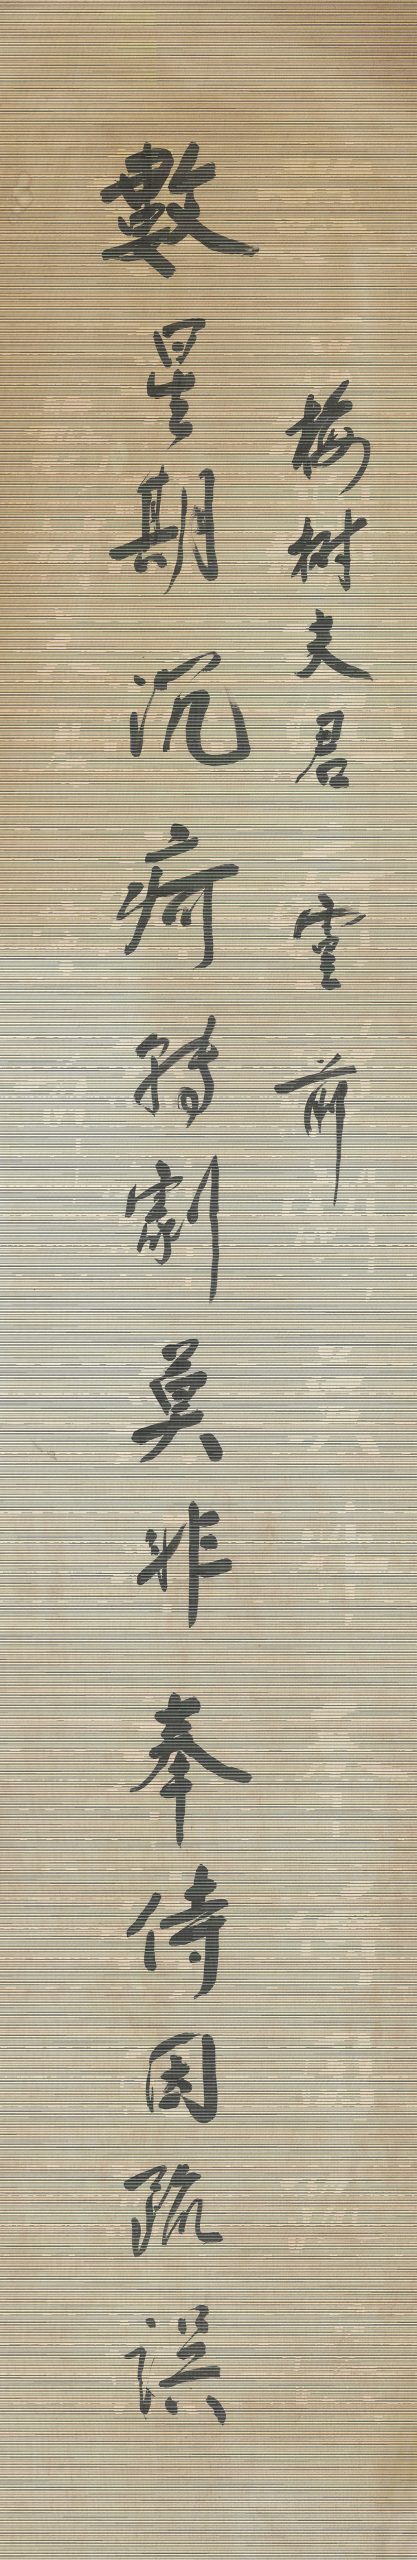 梅树夫君灵前
數星期沉疴转剧莫非奉侍因疏误